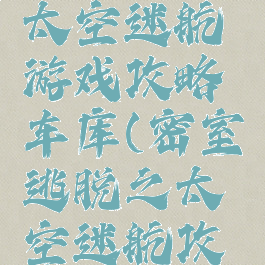 太空迷航
游戏攻略
车库(密室
逃脱之太
空迷航攻